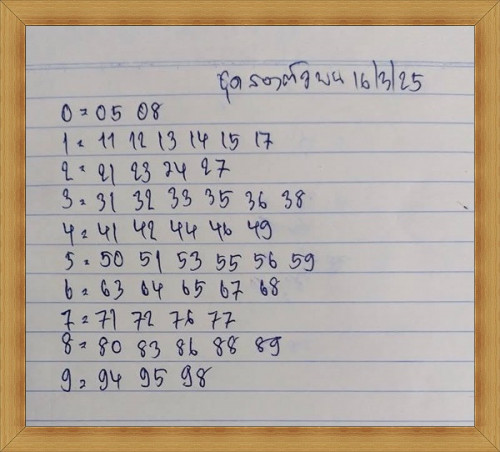 ชุด 16/3/25
0 = 05 08
1 = 11 12 13 14 15 17
2 = 21 23 24 27
3 = 31 32 33 35 36 38
4 = 41 42 44 46 49
5 = 50 51 53 55 56 59
6 = 63 64 65 67 68
7 = 71 72 76 77
8 = 80 83 86 88 89
9 = 94 95 98